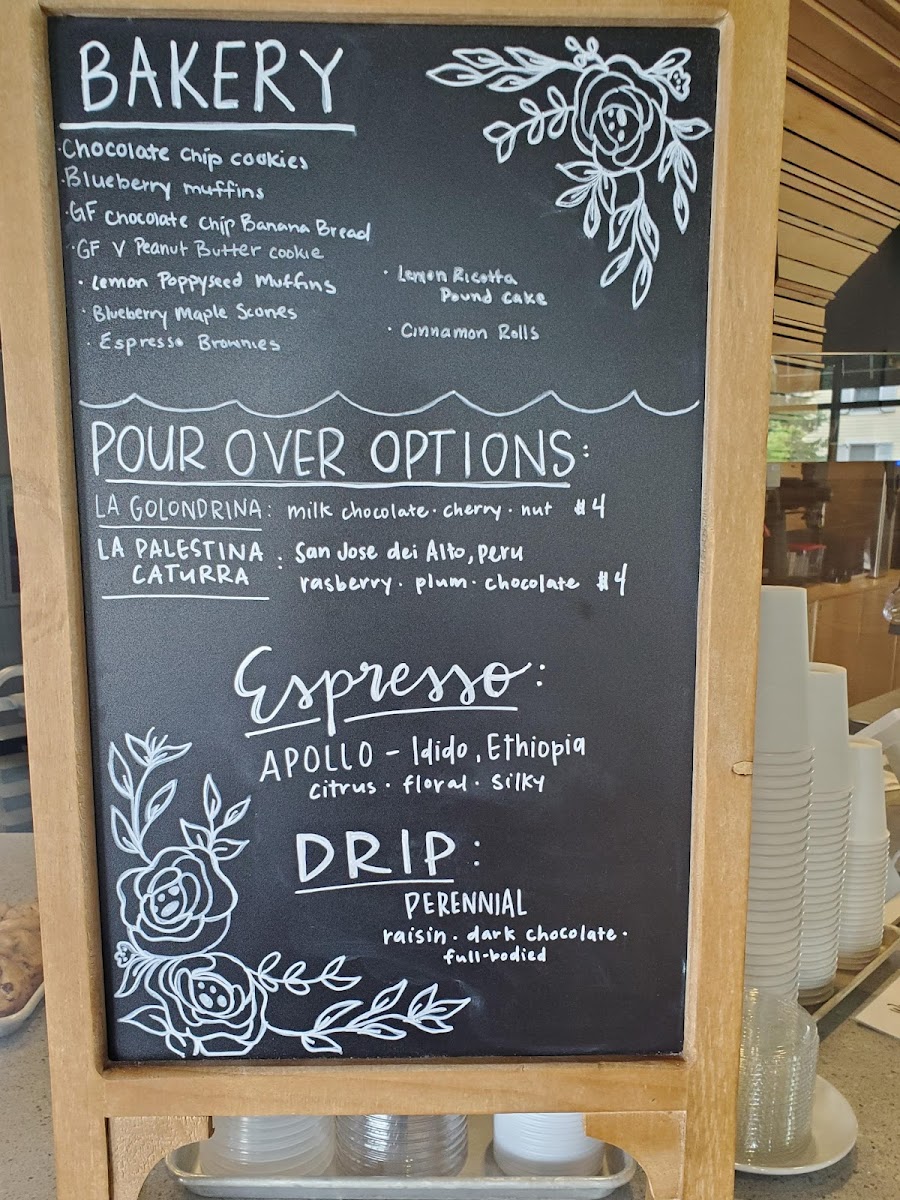 BAKERY
· Chocolate chip cookies
· Blueberry muffins
· GF chocolate chip Banana Bread
· GF V Peanut Butter cookie
· Lemon Poppyseed Muffins
· Blueberry Maple Scones
· Espresso Brownies
· Lemon Ricotta
Pound cake
· Cinnamon Rolls
POUR OVER OPTIONS:
LA GOLONDRINA: milk chocolate · cherry · nut $4
LA PALESTINA
CATURRA : San Jose dei Alto, Peru
rasberry · plum · chocolate $4
Espresso:
APOLLO - Idido, Ethiopia
citrus · floral · silky
DRIP:
PERENNIAL
raisin · dark chocolate ·
full-bodied